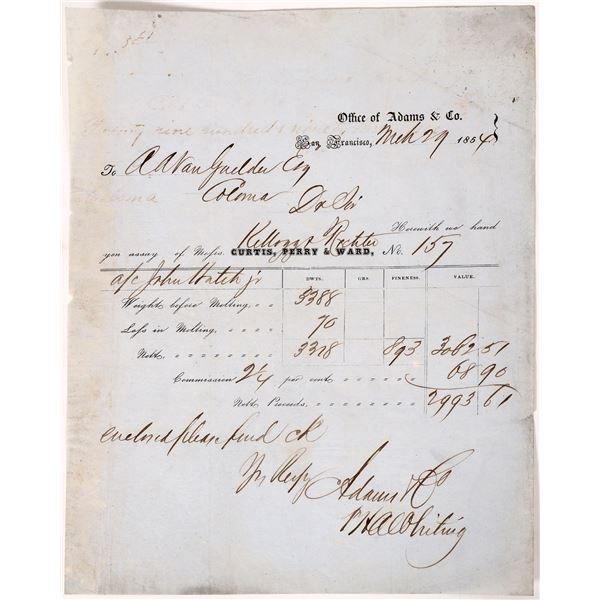 Office of Adams & Co.
San Francisco, Mch 29 1854
To A A Van Guelder Esq
Coloma
Dr Sir
Herewith we hand
Kellogg & Richter
you assay of Messrs. CURTIS, PERRY & WARD, No. 157
a/c John Hatch jr DWTS. GRS. FINENESS. VALUE.
Weight before Melting, 3388
Loss in Melting, 70
Nett 3318 893 3062 51
Commission 2¼ per cent 68 90
Nett Proceeds 2993 61
enclosed please find ck
Yrs Respy
Adams & Co
Whiting